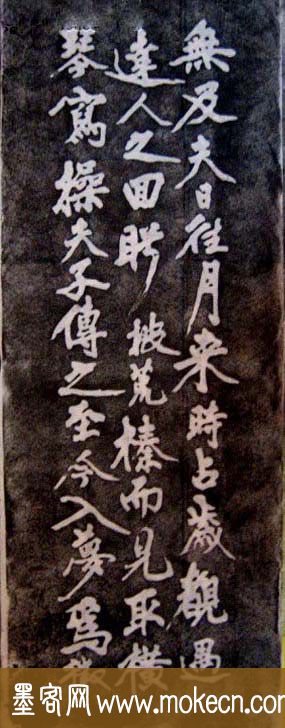 無及夫日往月来時占歲觀遇
達人之回盻披荒榛而見取橫
琴寫操夫子傳之至今入夢為
墨客网 www.mokecn.com